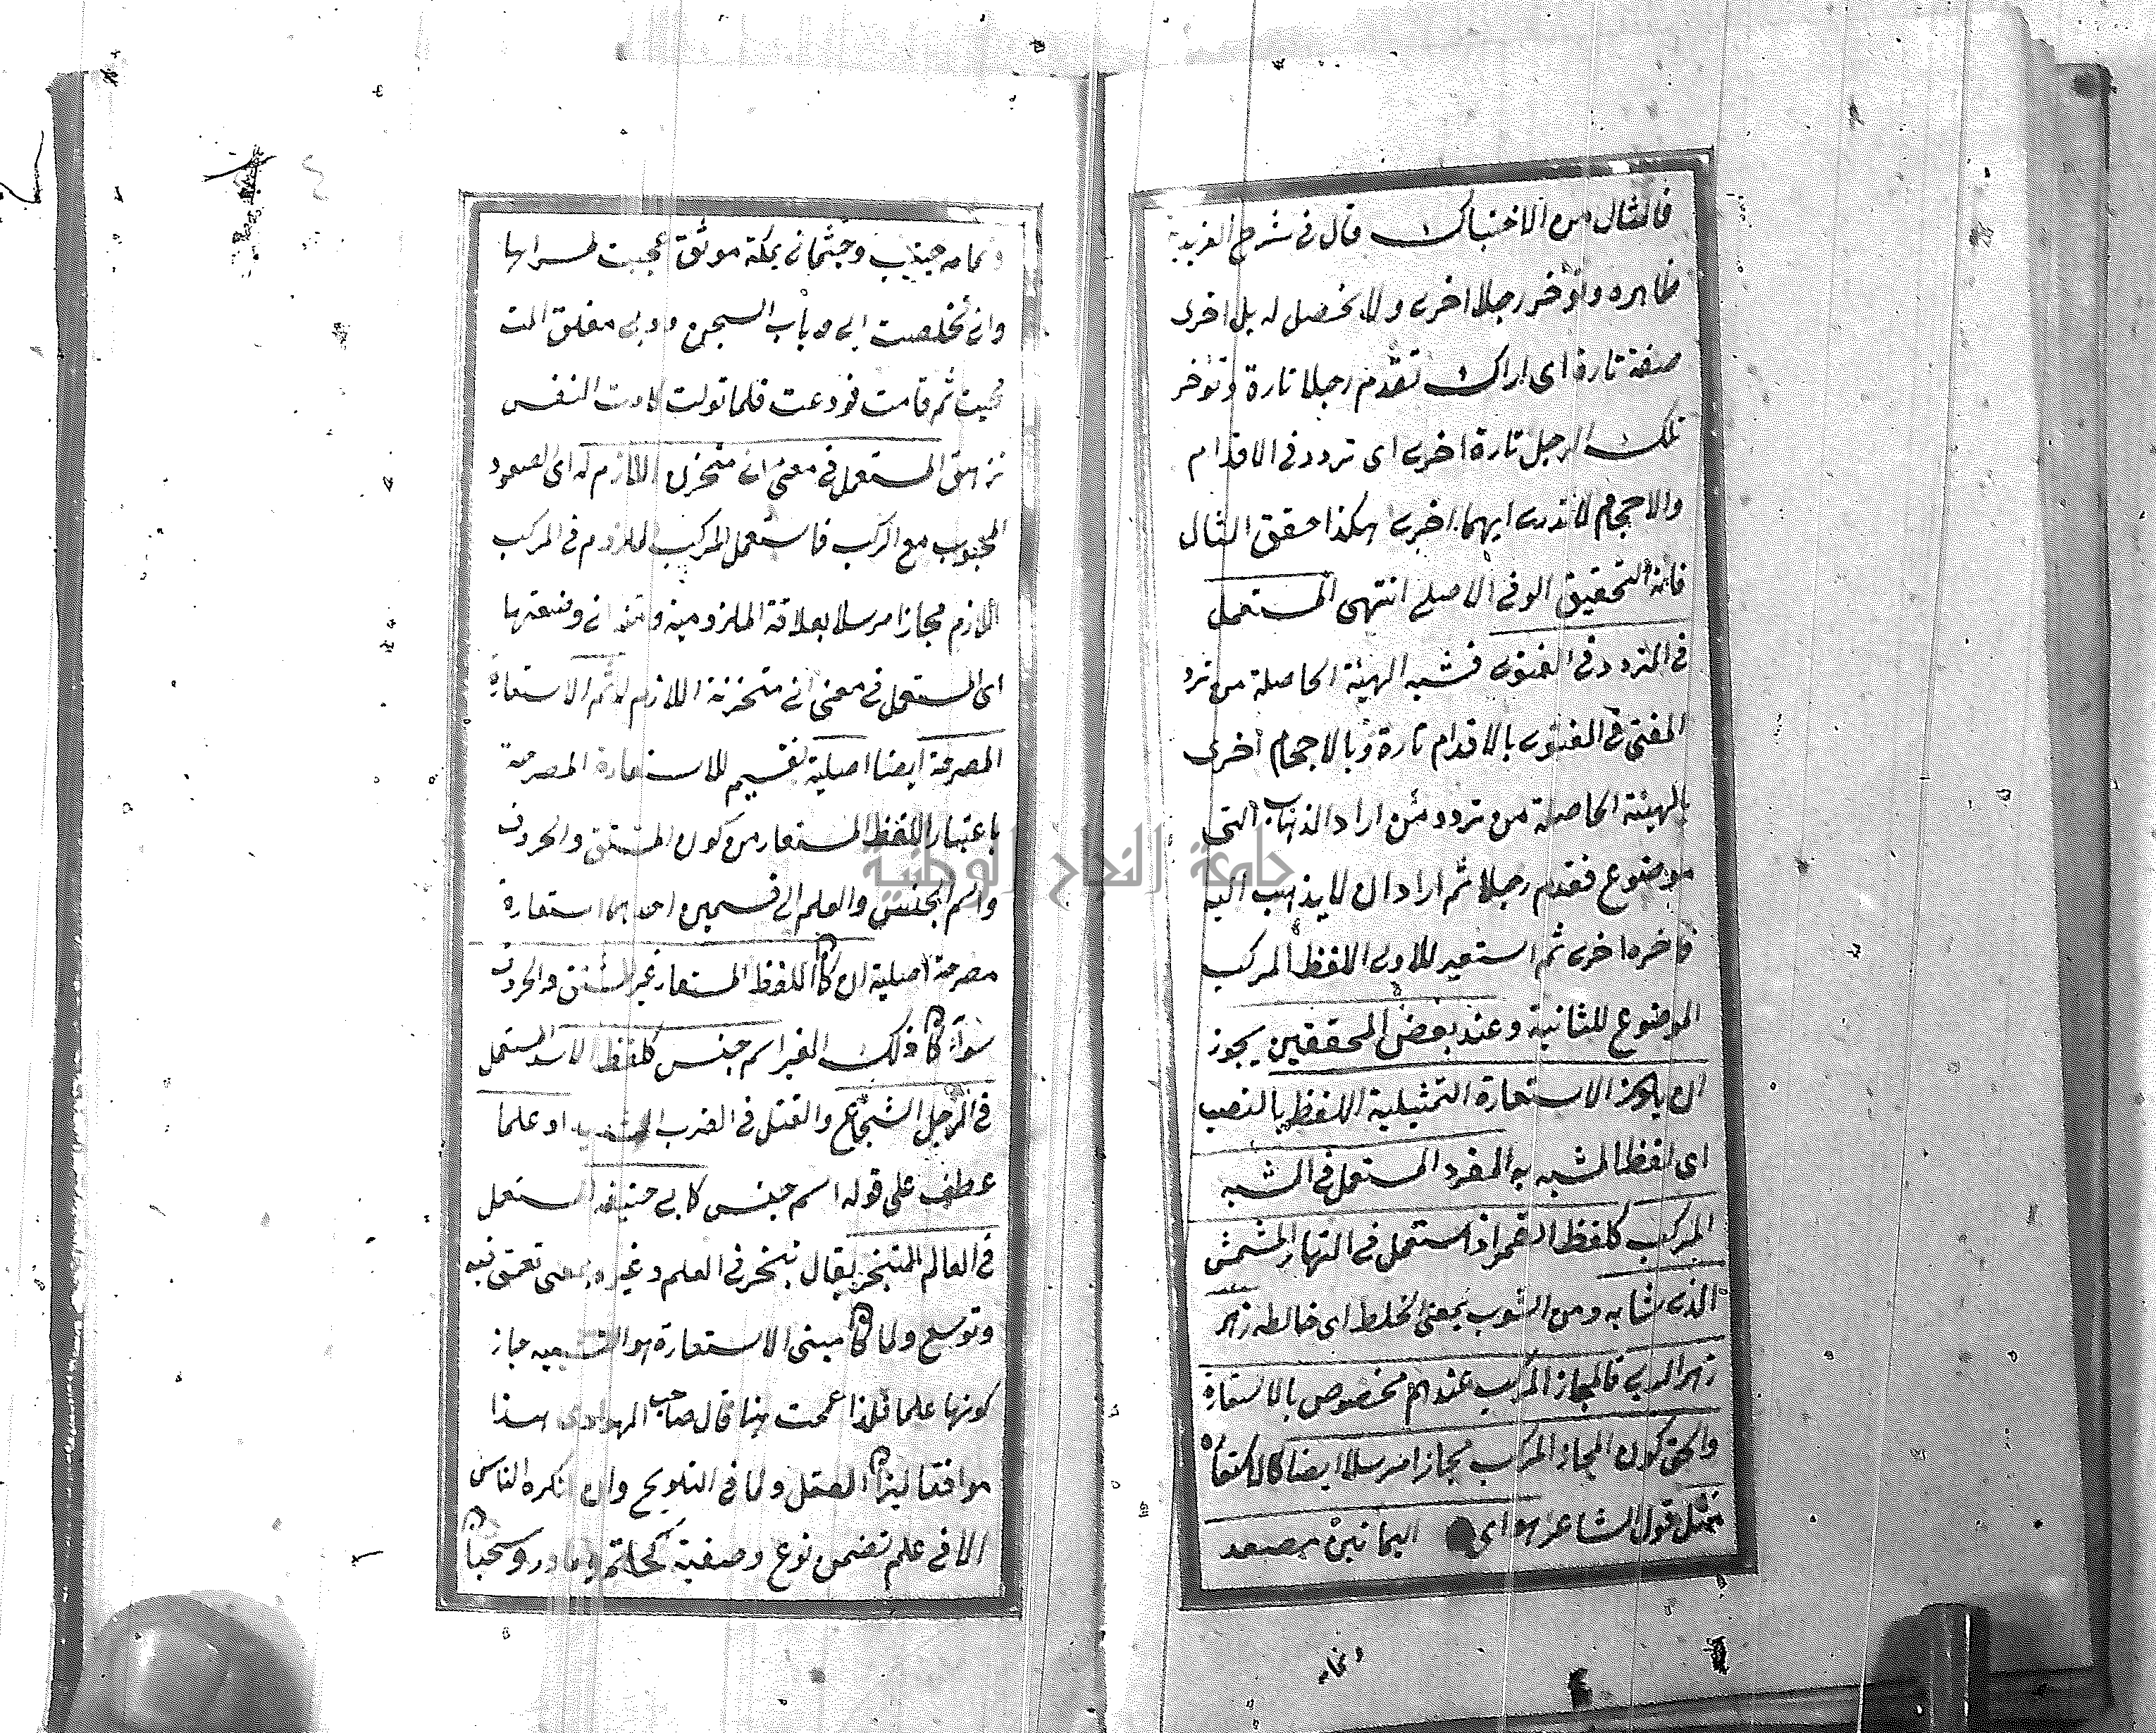 فالمثال من الاحتباك قال في شرح الفريدة
ظاهره وتؤخر رجلا اخرى ولا يحصل له بل اخرى
صفة تارة اى اراك تقدم رجلا تارة وتؤخر
تلك الرجل تارة اخرى اى تردد في الاقدام
والاحجام لا تدرى ايهما اخرى هكذا حقق المثال
فانه التحقيق الوفى الاصلى انتهى المستعمل
في المتردد في الفتوى فشبه الهيئة الحاصلة من تردد
المفتى في الفتوى بالاقدام تارة وبالاحجام اخرى
بالهيئة الحاصلة من تردد من اراد الذهاب التى
موضوع فقدم رجلا ثم اراد ان لا يذهب اليه
فاخره اخرى ثم استعير للاولى اللفظ المركب
الموضوع للثانية وعند بعض المحققين يجوز
ان يكون الاستعارة التمثيلية اللفظ بالنصب
اى لفظ المشبه به المفرد المستعمل في المشبه
المركب كلفظ القمر اذا استعمل في النهار المشمش
الذى شابه ومن الشوب بمعنى الخلط اى خالطه زهر
زهر الربى فالمجاز المركب عندهم مخصوص بالاستعارة
والحق كون المجاز المركب مجازا مرسلا ايضا كالاستعارة
مثل قول الشاعر هواى اليمانين مصعد
وتمامه
وتمامه جنيب وجثمانى بمكة موثق عجبت لمسراها
وانى تخلصت الى وباب السجن دونى مغلق المت
فحيت ثم قامت فودعت فلما تولت كادت النفس
تزهق المستعمل في معنى انى متحزن اللازم له اى الصعود
المحبوب مع الركب فاستعمل المركب الملزوم في المركب
اللازم مجازا مرسلا بعلاقة الملزومية و انى وضعتها
اى المستعمل في معنى انى متحزنة اللازم له ثم الاستعارة
المصرحة ايضا اصلية تقسيم للاستعارة المصرحة
باعتبار اللفظ المستعار من كون المشتق والحروف
واسم الجنس والعلم الى قسمين احدهما استعارة
مصرحة اصلية ان كان اللفظ المستعار غير المشتق والحروف
سواء كان ذلك الغير اسم جنس كلفظ الاسد المستعمل
في الرجل الشجاع والقتل في الضرب الشديد او علما
عطف على قوله اسم جنس كابي حنيفه المستعمل
في العالم المتبحر يقال تبحر في العلم وغيره بمعنى تعمق فيه
وتوسع ولما كان مبنى الاستعارة هو التشبيه جاز
كونها علما فلذا عمت هنا قال صاحب الهوادى هذا
موافقا لميزان العقل ولما في التلويح وان نكره الناس
الا في علم تضمن نوع وصفية كحاتم و مادر وسحبان